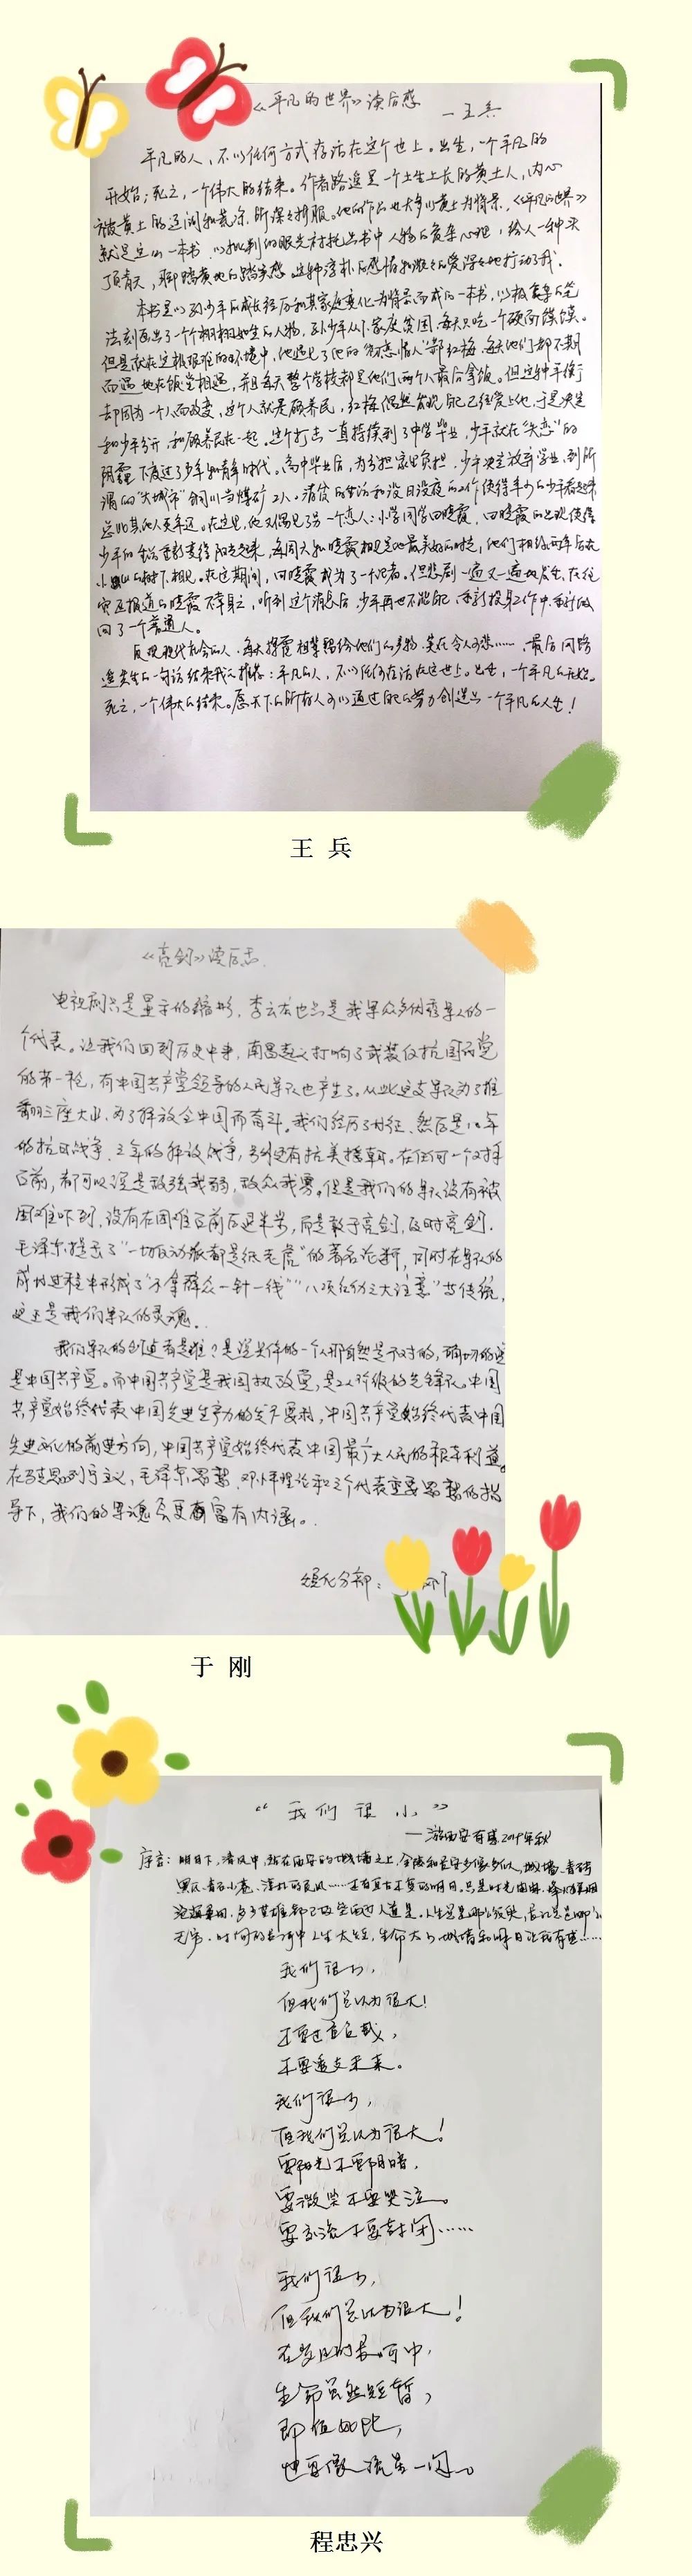 《平凡的世界》读后感
—王兵
平凡的人，不以任何方式存活在这个世上。出生，一个平凡的
开始；死亡，一个伟大的结束。作者路遥是一个土生土长的黄土人，内心
被黄土的辽阔和荒凉所深深折服。他的作品也大多以黄土为背景，《平凡的世界》
就是这么一本书，以批判的眼光衬托出书中人物的复杂心理，给人一种头
顶青天，脚踏黄地的踏实感，这种淳朴的感情和激烈的爱深深地打动了我。
本书是以孙少平的成长经历和其家庭变化为背景而成的一本书，以极复杂的笔
法刻画出了一个个栩栩如生的人物，孙少平从小家庭贫困，每天只吃一个硬面馍馍。
但是就在这极艰难的环境中，他遇见了他的“初恋情人”郝红梅，每天他们都不期
而遇地在饭堂相遇，并且每天整个学校都是他们两个人最后拿饭。但这种平衡
却因为一个人而改变，这个人就是顾养民，红梅偶然发现自己已经爱上他，于是决定
和少平分开，和顾养民在一起。这个打击一直持续到了中学毕业，少平就在“失恋”的
阴霾下度过了少年和青年时代。高中毕业后，为分担家里负担，少平决定放弃学业，到所
谓的“大城市”铜川当煤矿工人。清贫的生活和没日没夜的工作使得年少的少平看起来
总比其他人更年迈。在这里，他又偶见了另一个恋人：小学同学田晓霞，田晓霞的出现使得
少平的生活重新变得阳光起来，每周六和晓霞相见是他最美好的时光，他们相约两年后在
小山的树下相见。在这期间，田晓霞成为了一个记者。但悲剧一遍又一遍地发生，在往
灾区报道的晓霞不幸身亡，听到这个消息后，少平再也不能自已，重新投身工作中，重新做
回了一个普通人。
最后同路
遥先生的一句话结束我的推荐：平凡的人，不以任何存活在这世上。出生，一个平凡的开始。
死亡，一个伟大的结束。愿天下的所有人可以通过自己的劳力创造出一个平凡的人生！
王 兵
《亮剑》读后感
电视剧只是显示的缩影，李云龙也只是我军众多优秀军人的一
个代表。让我们回到历史中来，南昌起义打响了武装反抗国民党
的第一枪，有中国共产党领导的人民军队也产生了。从此这支军队为了推
翻三座大山，为了解放全中国而奋斗。我们经历了长征、然后是八年
的抗日战争、三年的解放战争，另外还有抗美援朝。在任何一个对手
面前，都可以说是敌强我弱，敌众我寡。但是我们的军队没有被
困难吓到，没有在困难面前后退半步，而是敢于亮剑，及时亮剑。
毛泽东提出了“一切反动派都是纸老虎”的著名论断，同时在军队的
成长过程中形成了“不拿群众一针一线”“八项纪伪三大注意”等传统，
这正是我们军队的灵魂。
我们军队的创造者是谁？是说具体的一个人那自然是不对的，确切的说
是中国共产党。而中国共产党是我国执政党，是工人阶级的先锋队。中国
共产党始终代表中国先进生产力的发展要求，中国共产党始终代表中国
先进文化的前进方向，中国共产党始终代表中国最广大人民的根本利益。
在马克思列宁主义，毛泽东思想、邓小平理论和三个代表重要思想的指
导下，我们的军魂会更有富有内涵。
绥化分部：
于 刚
“我们很小”
——游西安有感2019年秋
序言：明月下，清风中，站在西安的城墙之上，金陵和长安多像多似，城墙、青砖
黑瓦、青石小巷、淳朴的民风……还有亘古不变的明月。只是时光荏苒，烽火狼烟
沧海桑田，多少英雄都已故
无穷，时间的长河中人生太短，生命太小，城墙和明月让我有感……
我们很小，
但我们总以为很大！
不要过高自我，
不要透支未来。
我们很小，
但我们总以为很大！
要阳光不要阴暗，
要微笑不要哭泣。
要交流不要封闭……
我们很小，
但我们总以为很大！
在岁月的长河中，
生命虽然短暂，
即便如此，
也要像流星一闪。
程忠兴